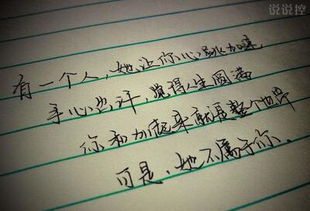 说说控
有一个人，她让你心跳加速
手心出汗，觉得人生圆满
你和她加起来就是整个世界
可是，她不属于你．